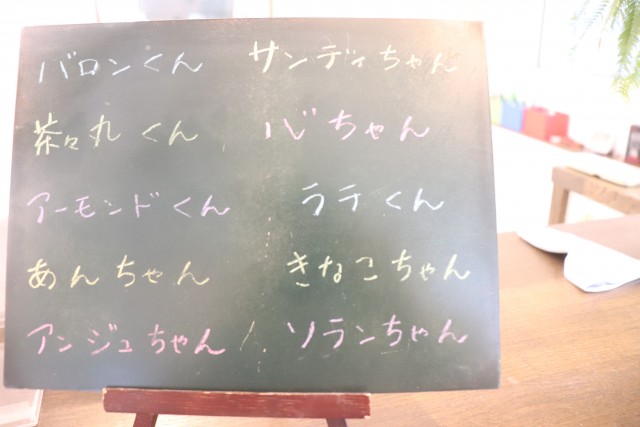 バロンくん サンディちゃん
茶々丸くん ハジちゃん
アーモンドくん ラテくん
あんちゃん きなこちゃん
アンジュちゃん ソランちゃん